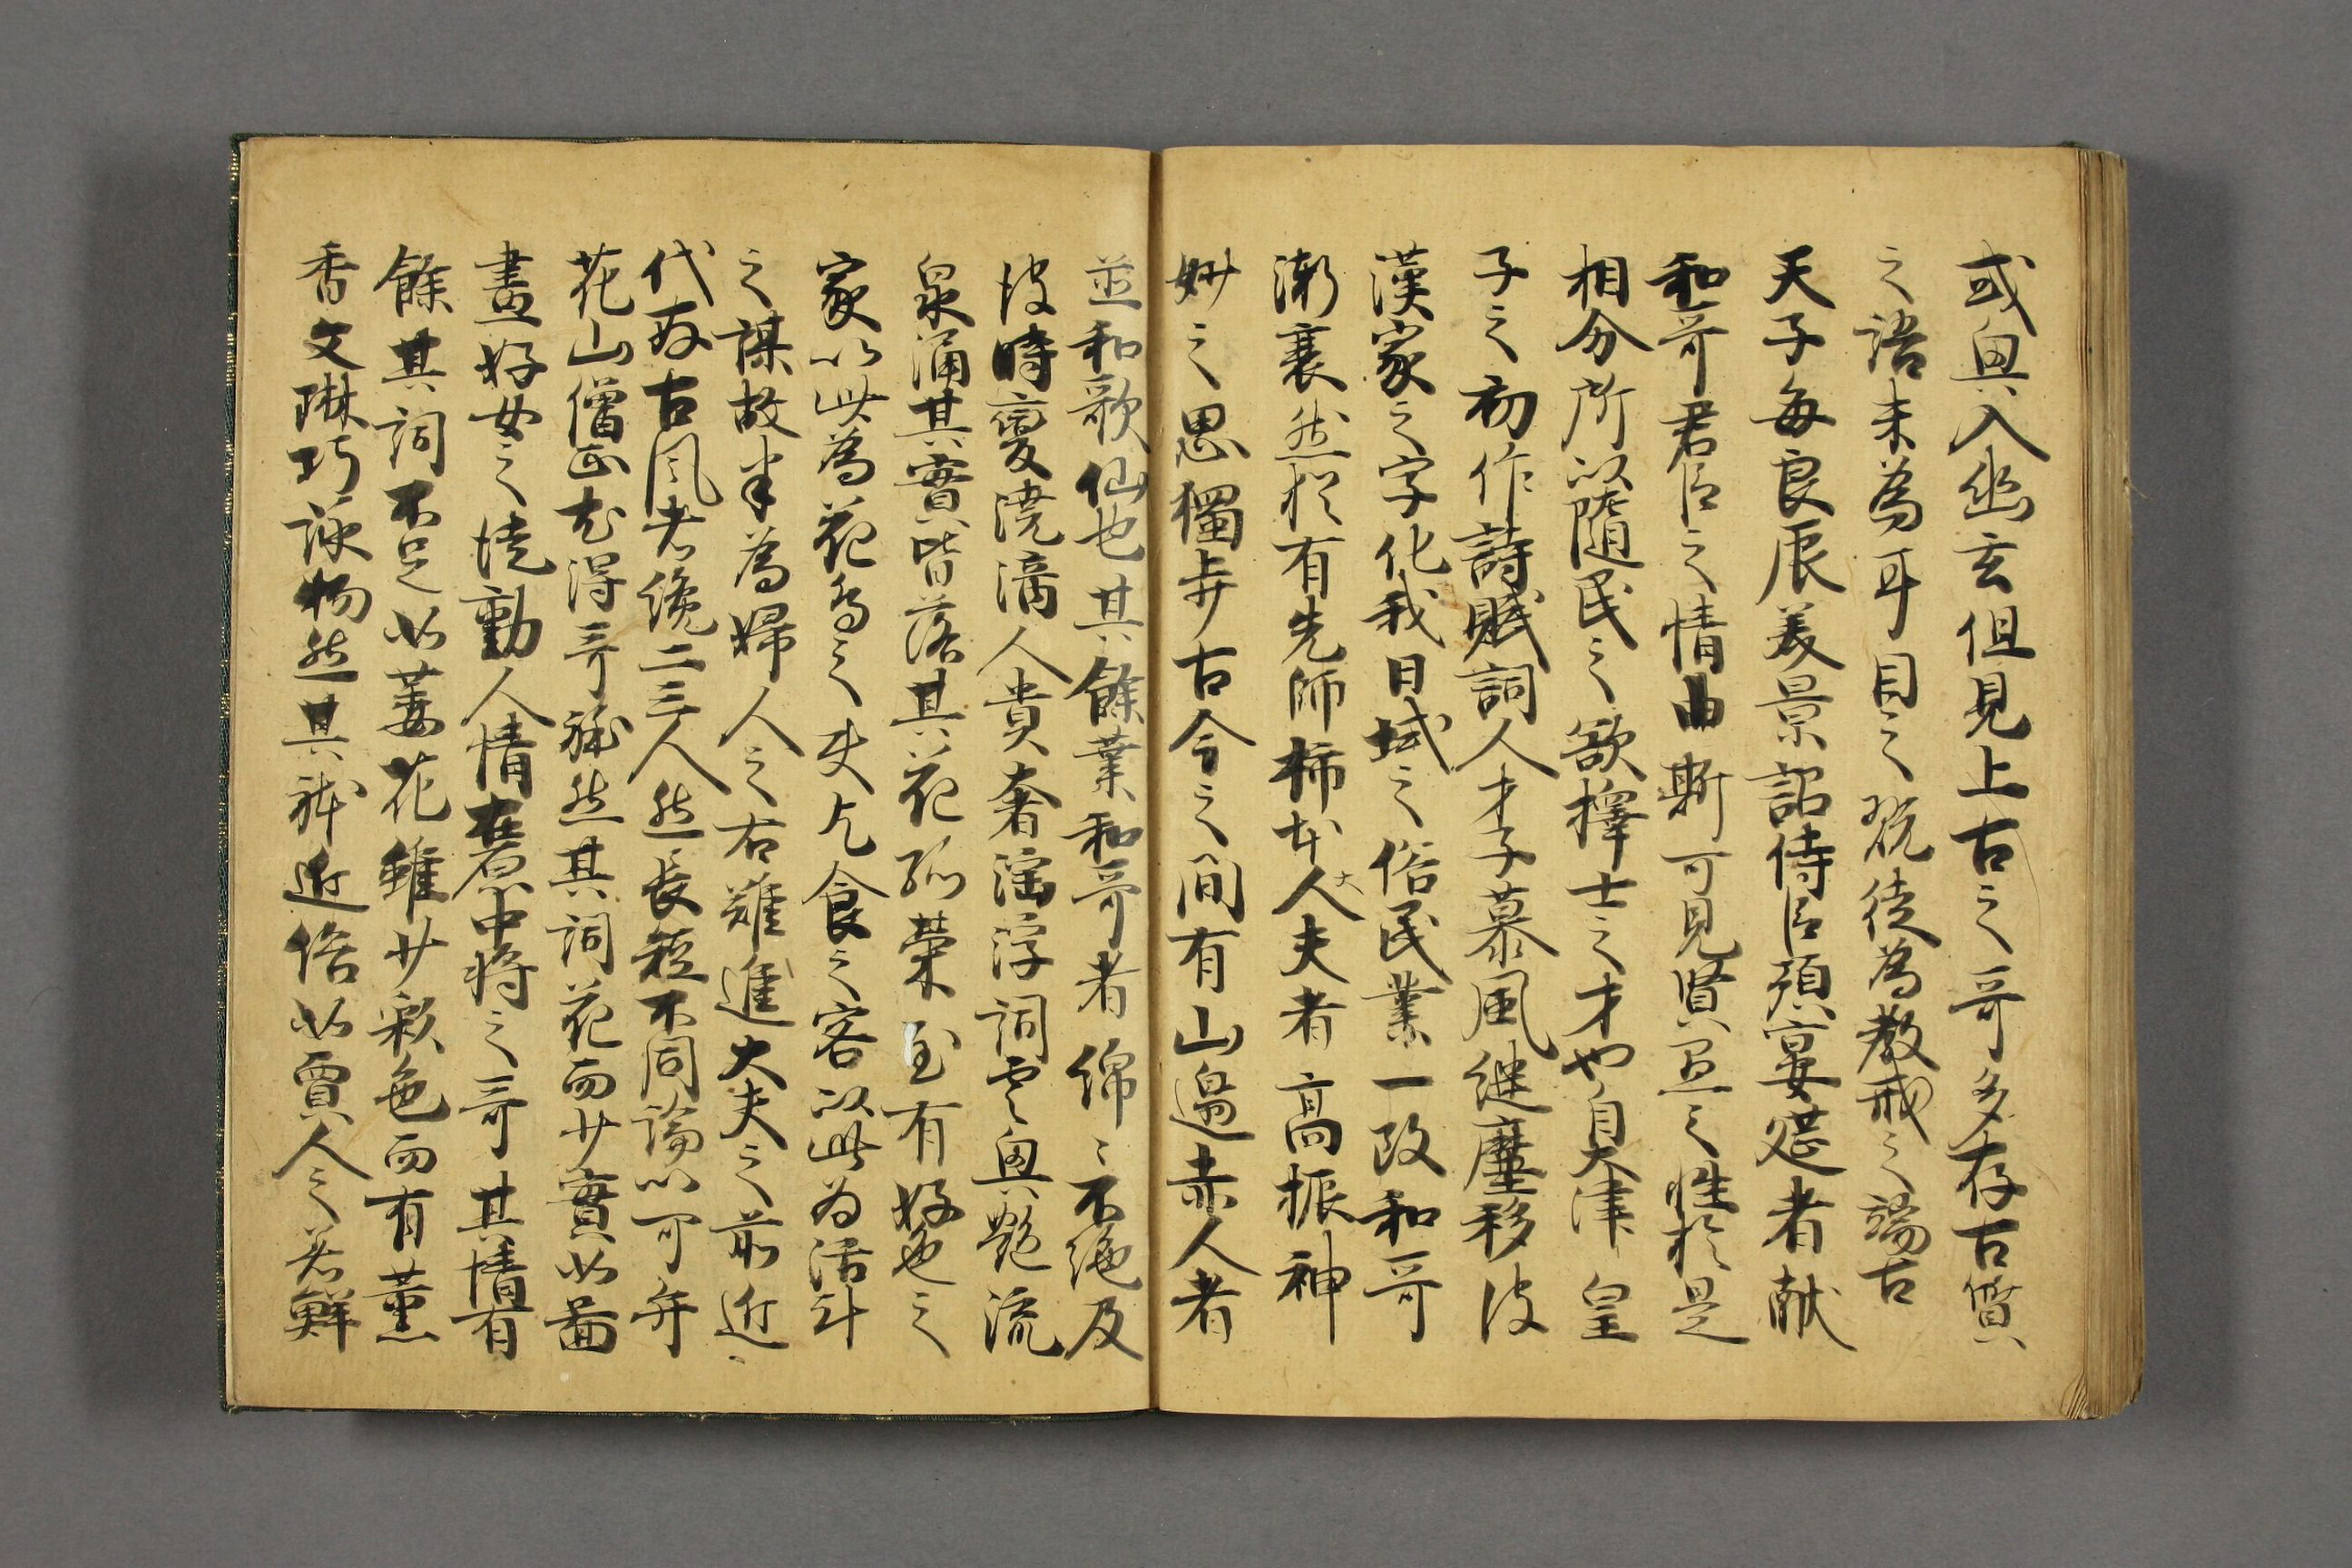 或興入幽玄但見上古之哥多存古質
之語未為耳目之翫徒為教戒之端古
天子每良辰美景詔侍臣預宴莚者献
和哥君臣之情由斯可見賢愚之性於是
相分所以隨民之欲擇士之才也自大津皇
子之初作詩賦詞人才子慕風継塵移彼
漢家之字化我日域之俗民業一改和哥
漸衰然猶有先師柿本人夫者高振神
大
妙之思獨步古今之間有山邊赤人者
並和歌仙也其餘業和哥者綿〻不絶及
彼時變澆漓人貴奢淫浮詞雲興艶流
泉涌其實皆落其花孤榮至有好色之
家以此為花鳥之使乞食之客以此為活計
之謀故半為婦人之右難進大夫之前近
代存古風者纔二三人然長短不同論以可弁
花山僧正尤得哥躰然其詞花而少實如啚
畫好女之徒動人情在原中将之哥其情有
餘其詞不足如萎花雖少彩色而有薫
香文琳巧詠物然其躰近俗如賈人之着鮮